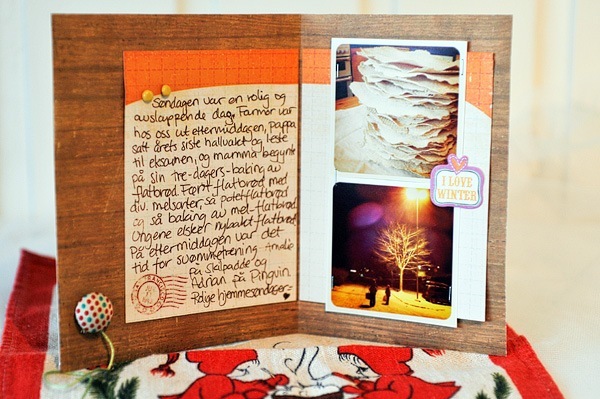 Søndagen var en rolig og
avslappende dag. Farmor var
hos oss ut ettermiddagen, pappa
satt årets siste halluaiet og leste
til eksamen, og mamma begynte
på sin tre-dagers-baking av
flatbrød. Først flatbrød med
div. melsorter, så potetflatbrød
og så baking av mel-flatbrød.
Ungene elsker nybakt flatbrød.
På ettermiddagen var det
tid for svømmetrening. Amalie
på Skilpadde og
Adrian på Pingvin
Rolige hjemmesøndager =
I LOVE
WINTER